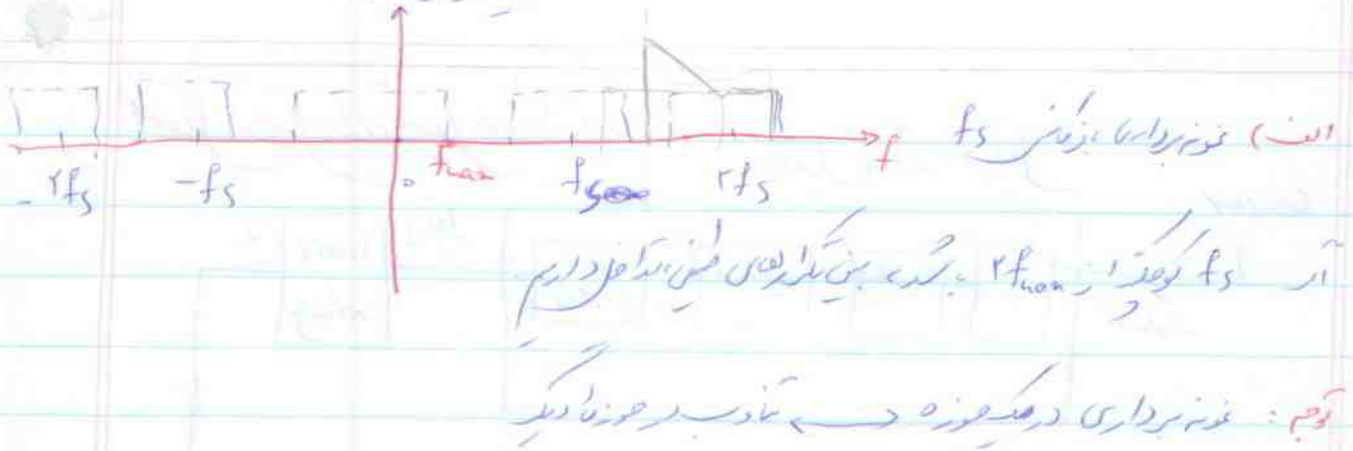 f
-۲fs -fs ۰ fmax fs ۲fs
الف) نمونه‌برداری با فرکانس fs
اگر fs کوچکتر از ۲fmax باشد، بین تکرارهای طیفی، تداخل داریم
توجه: نمونه برداری در یک حوزه تناوب در حوزه دیگر